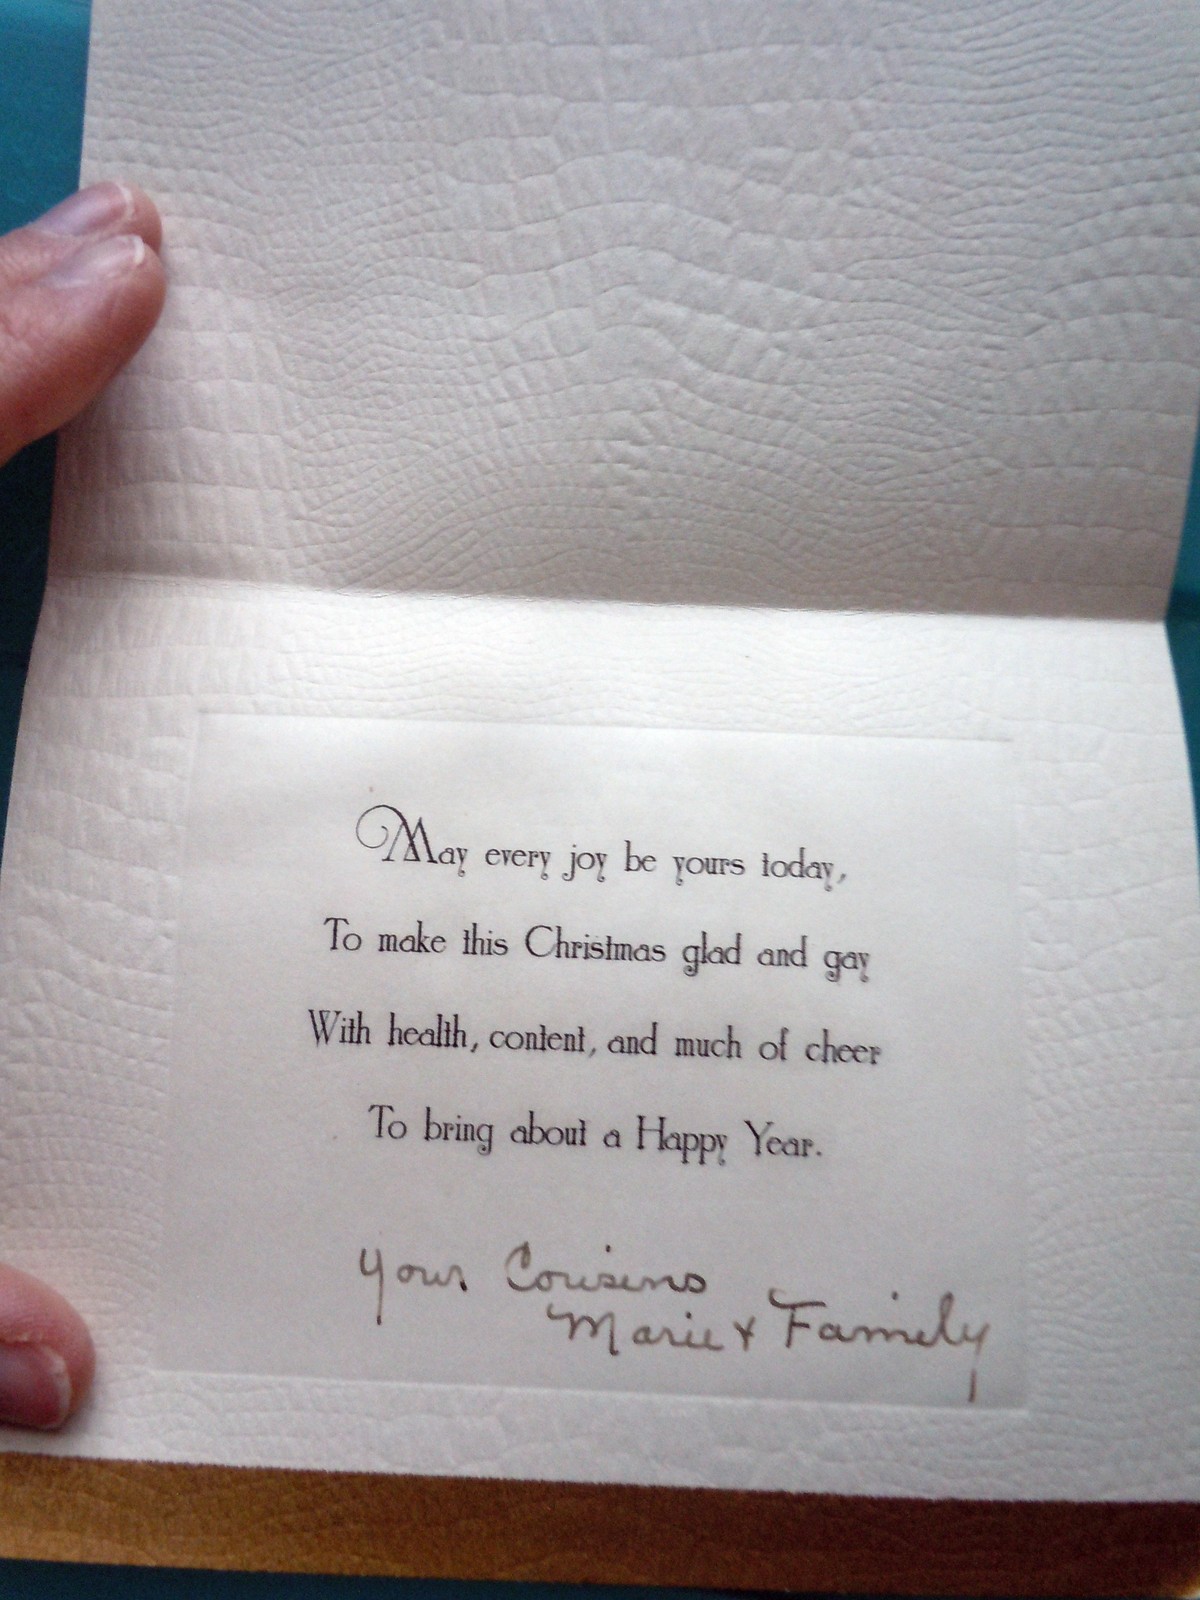 May every joy be yours today,
To make this Christmas glad and gay
With health, content, and much of cheer
To bring about a Happy Year.
Your Cousins
Marie & Family